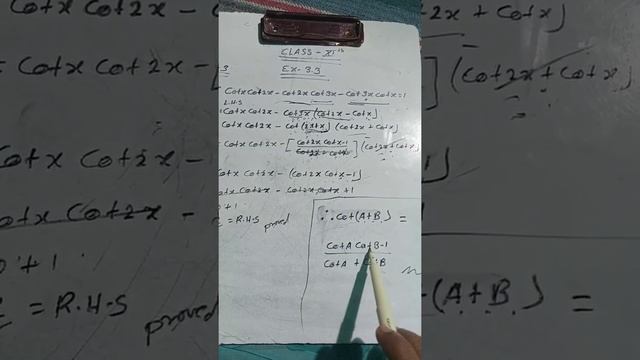 CLASS - XIth
3 Ex - 3.3
Cotx Cot2x - Cot2x Cot3x - Cot3x Cotx = 1
L.H.S
= Cotx Cot2x - Cot3x (Cot2x - Cotx)
Cotx Cot2x - Cot(2x+x) (Cot2x + Cotx)
= Cotx Cot2x - [Cot2x Cotx-1 / Cot2x + Cotx] (Cot2x + Cotx)
Cotx Cot2x - (Cot2x Cotx - 1)
Cotx Cot2x - Cot2x Cotx + 1
0 + 1
= R.H.S proved
∴ Cot(A+B) =
CotA CotB-1
CotA + B